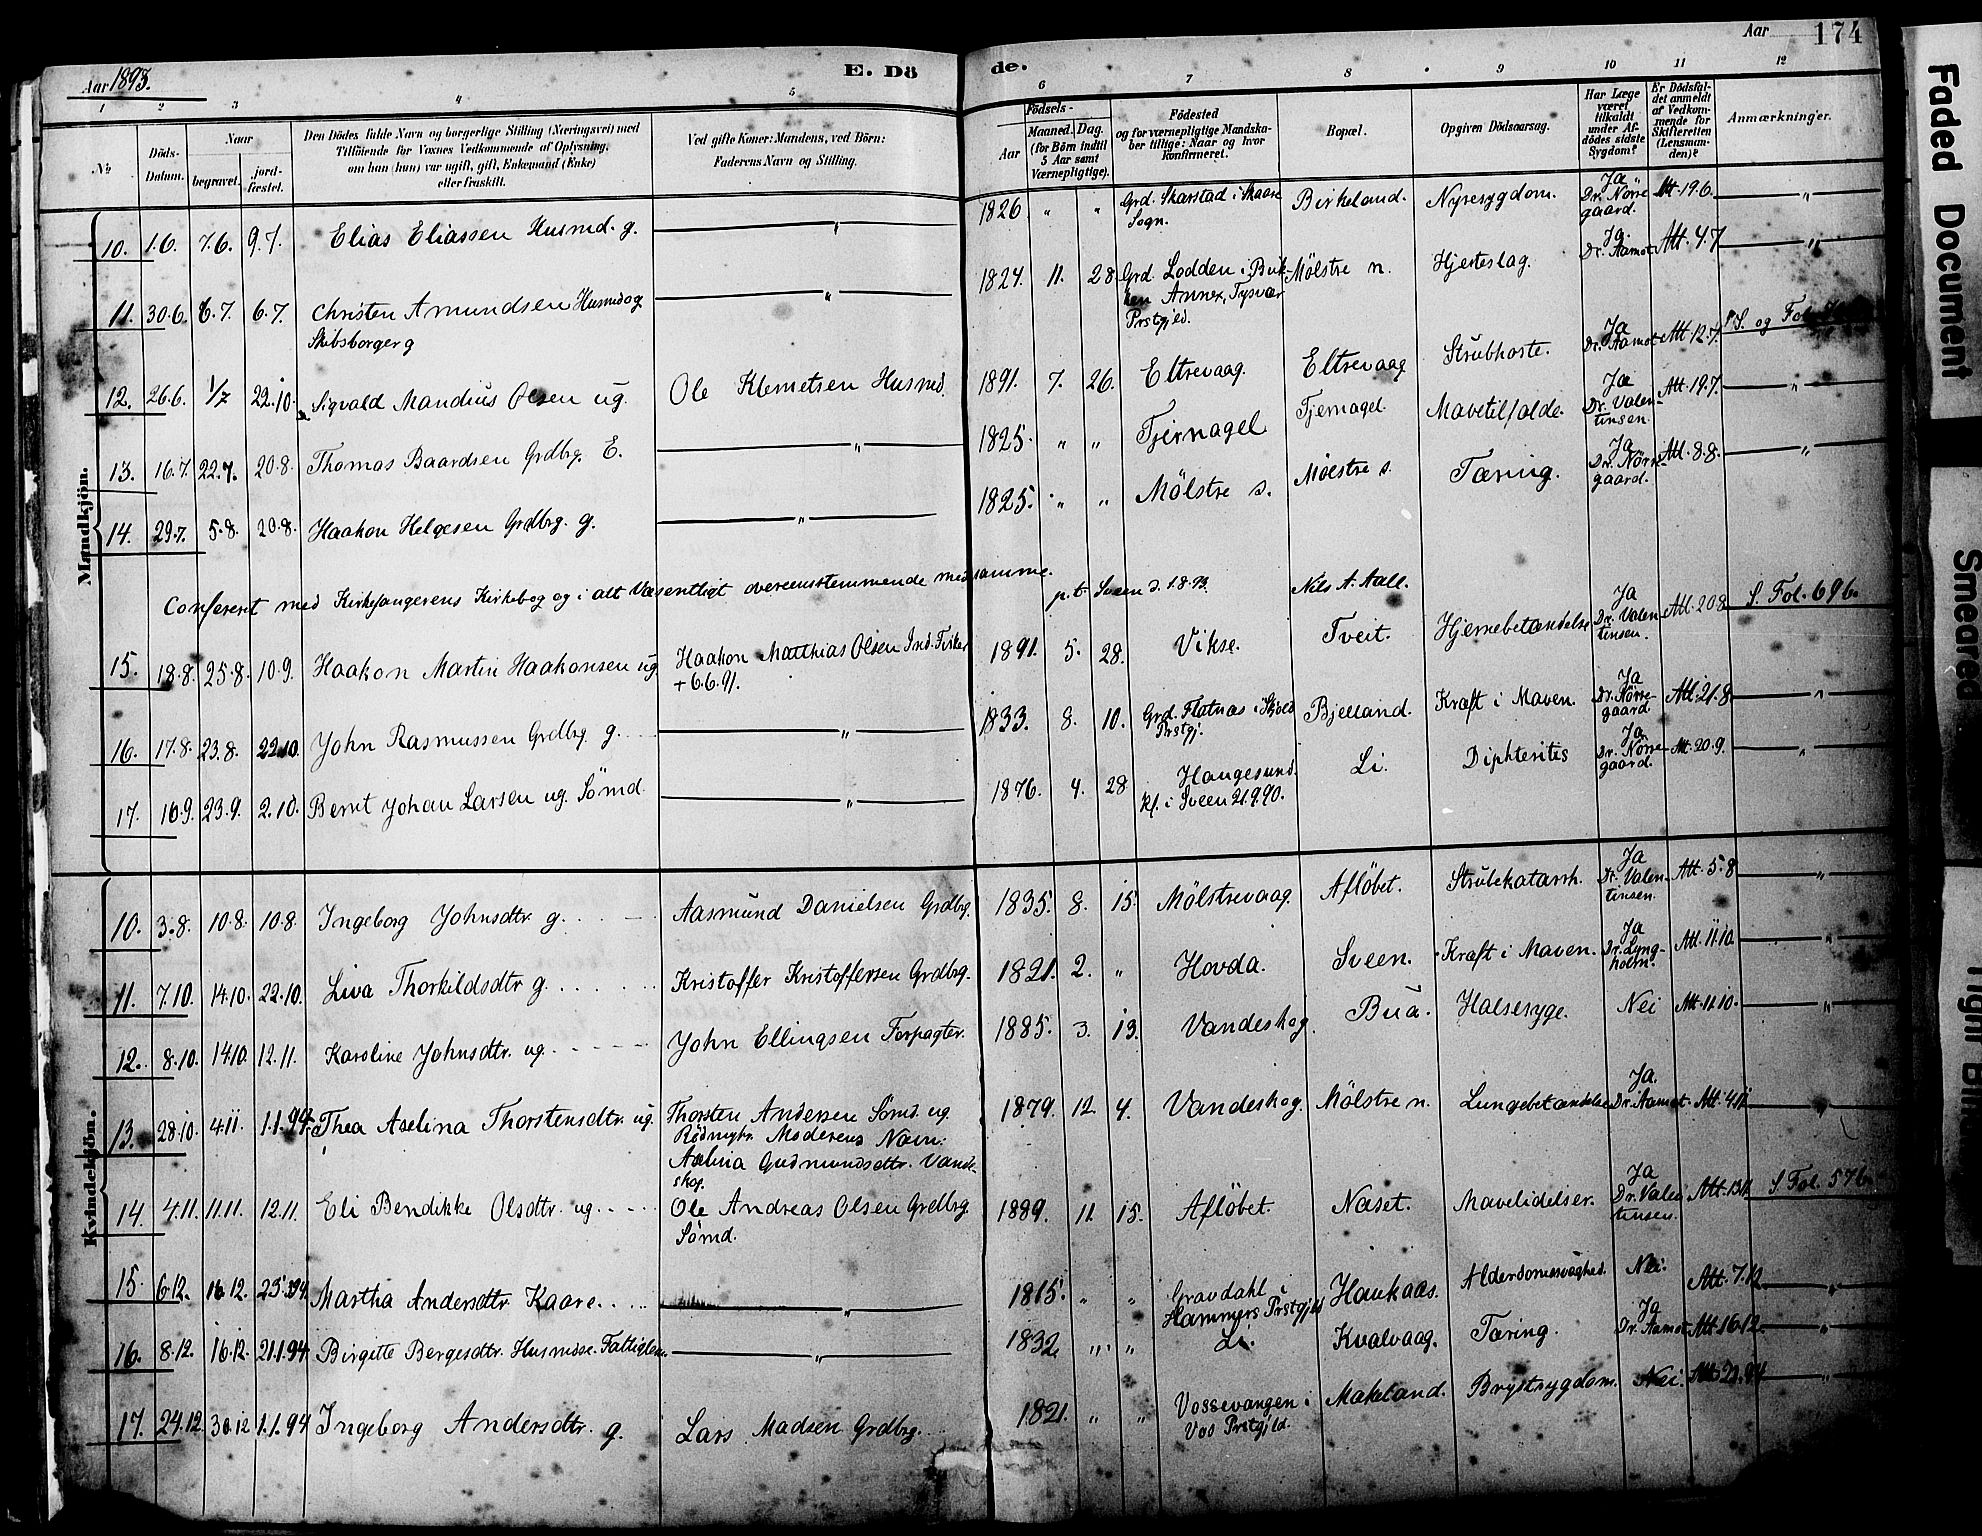 Aar 1893.
E. Dö
de.
Aar
174
1 2 3 4 5 6 7 8 9 10 11 12
No
Döds-
Datum.
Naar
begravet.
jord-
fæstet.
Den Dödes fulde Navn og borgerlige Stilling (Næringsvei) med
Tilföiende for Voxnes Vedkommende af Oplysning,
om han (hun) var ugift, gift, Enkemand (Enke)
eller fraskilt.
Ved gifte Koner: Mandens, ved Börn:
Faderens Navn og Stilling.
Födsels-
Aar
Maaned. Dag.
(for Börn indtil
5 Aar samt
Værnepligtige).
Födested
og for værnepligtige Mandska-
ber tillige: Naar og hvor
konfirmeret.
Bopæl.
Opgiven Dödsaarsag.
Har Læge
været
tilkaldt
under Af-
dödes sidste
Sygdom?
Er Dödsfal-
det anmeldt
af Vedkom-
mende for
Skifteretten
(Lensman-
den)?
Anmærkninger.
Mandkjön.
10. 1.6. 7.6. 9.7. Elias Eliassen Husmd. g. " 1826 " " Grd. Skarstad i Skaare Sogn. Birkeland. Nyresygdom. Ja Dr. Nørregaard. Att. 19.6. "
11. 30.6. 6.7. 6.7. Christen Amundsen Husmd og " 1824. 11. 28. Grd. Lodden i Buk- Mølstre n. Hjerteslag. Ja. Dr. Aamot Att. 4.7 "
Skibsborger g
ken Annex, Tysvær
Prstgjld.
12. 26.6. 1/7 22.10. Sigvald Mandius Olsen ug. Ole Klemetsen Husmd. 1891. 7. 26. Eltrevaag. Eltrevaag Strubhoste. Ja Dr. Aamot Att. 12.7. S. og Fol.
13. 16.7. 22.7. 20.8. Thomas Baardsen Grdbrg. E. " 1825. " " Tjernagel Tjernagel. Mavetilfælde. Ja Dr. Valentinsen. Att. 19.7. "
14. 29.7. 5.8. 20.8. Haakon Helgesen Grdbrg. g. " 1825. " " Mölstre s. Mölstre s. Tæring. Ja Dr. Nørregaard. Att. 8.8. "
Confereret med Kirkesangerens Kirkebog og i alt Væsentligt overeensstemmende med samme.
p.t. Sveen d. 1.8.93. Nils A. Aall.
15. 18.8. 25.8. 10.9. Haakon Martin Haakonsen ug Haakon Matthias Olsen Ind. Fisker 1891. 5. 28. Vikse. Tveit. Hjernebetændelse Ja Dr. Valentinsen. Att. 20.8. S. Fol. 69b.
+ 6.6.91.
16. 17.8. 23.8. 22.10. John Rasmussen Grdbrg. g. " 1833. 8. 10. Grd. Flatnæs i Skjold Prstgj. Bjelland. Kræft i Maven. Ja Dr. Nørregaard Att. 21.8. "
17. 16.9. 23.9. 2.10. Bernt Johan Larsen ug. Sømd. " 1876. 4. 28 Haugesund. Li. Diphteritis Ja Dr. Nørregaard. Att. 20.9. "
kf. i Sveen 21.9.90.
Kvindekjön.
10. 3.8. 10.8. 10.8. Ingeborg Johnsdtr g. Aasmund Danielsen Grdbrg. 1835. 8. 15. Mölstrevaag. Aflöbet. Strubekatarrh. Ja Dr. Valentinsen. Att. 5.8 "
11. 7.10. 14.10. 22.10. Liva Thorkildsdtr g. Kristoffer Kristoffersen Grdbrg. 1821. 2. " Hovda. Sveen. Kræft i Maven. Ja Dr. Lyngholm. Att. 11.10. "
12. 8.10. 14.10. 12.11. Karoline Johnsdtr. ug. John Ellingsen Forpagter. 1885. 3. 13. Vandeskog. Bua. Halsesyge. Nei Att. 11.10. "
13. 28.10. 4.11. 1.1.94. Thea Aselina Thorstensdtr. ug. Thorsten Andersen Sømd. ug. 1879. 12. 4. Vandeskog. Mølstre n. Lungebetændelse Ja. Dr. Aamot. Att. 4.11. "
Moderens Navn:
Aselina Gudmundsdtr. Vande-
skog.
14. 4.11. 11.11. 12.11. Eli Bendikke Olsdtr. ug. Ole Andreas Olsen Grdbrg. 1889. 11. 15. Aflöbet. Næset. Mavelidelser. Ja Dr. Valentinsen. Att. 13.11. S. Fol. 57b.
Sømd.
15. 6.12. 16.12. Martha Andersdtr. Kaare. " 1815. " " Gravdahl i Hammers Prstgjld Haukaas. Alderdomssvaghed. Nei. Att. 7.12. "
16. 8.12. 16.12. 21.1.94 Birgitte Bergesdtr. Husmdse. Fattiglem. " 1832. " " Li. Kvalvaag. Tæring. Ja Dr. Aamot Att. 16.12. "
17. 24.12. 30.12 1.1.94 Ingeborg Andersdtr. g. Lars Madsen Grdbrg. 1821. " " Vossevangen i Vos Prstgjld. Mækeland. Brystsygdom. Nei. "
Faded Document
Smeared